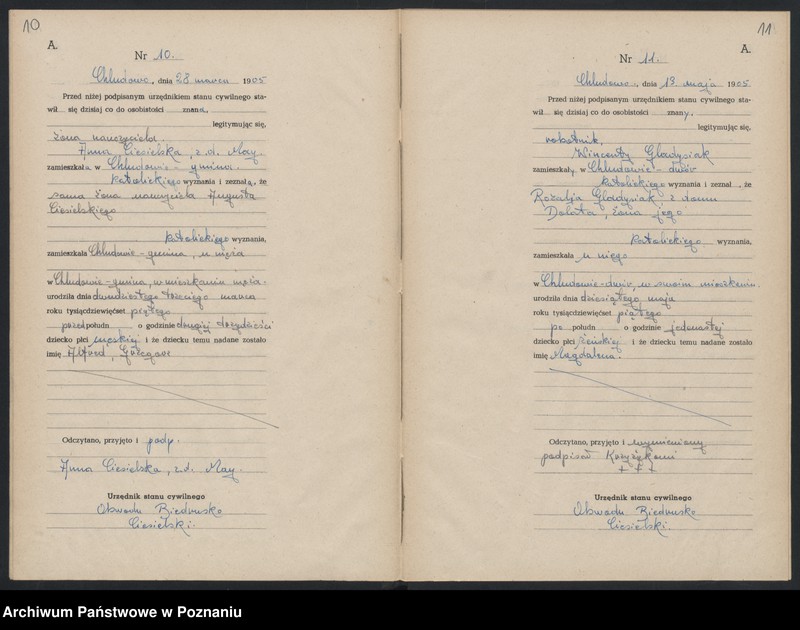 10
A.
Nr 10.
Chludowo, dnia 28 marca 1905
Przed niżej podpisanym urzędnikiem stanu cywilnego sta-
wił się dzisiaj co do osobistości znana,
legitymując się,
żona nauczyciela,
Anna Ciesielska, z d. May
zamieszkała w Chludowie - gmina.
katolickiego wyznania i zeznała, że
sama żona nauczyciela Augusta
Ciesielskiego
katolickiego wyznania,
zamieszkała Chludowie - gmina, u męża
w Chludowie - gmina, w mieszkaniu męża.
urodziła dnia dwudziestego trzeciego marca
roku tysiącdziewięćset piątego
przed połudn o godzinie drugiej
dziecko płci męskiej i że dziecku temu nadane zostało
imię Alfred,
Odczytano, przyjęto i podp.
Anna Ciesielska, z d. May.
Urzędnik stanu cywilnego
Obwodu Biedrusko
Ciesielski.
11
A.
Nr 11.
Chludowo, dnia 13 maja 1905
Przed niżej podpisanym urzędnikiem stanu cywilnego sta-
wił się dzisiaj co do osobistości znany,
legitymując się,
robotnik,
Wincenty Gładysiak
zamieszkały w Chludowie - dwór
katolickiego wyznania i zeznał, że
Rozalja Gładysiak z domu
żona jego
katolickiego wyznania,
zamieszkała u niego
w Chludowie - dwór, w swoim mieszkaniu.
urodziła dnia dziesiątego maja
roku tysiącdziewięćset piątego
po połudn o godzinie jedenastej
dziecko płci żeńskiej i że dziecku temu nadane zostało
imię Magdalena.
Odczytano, przyjęto i wymieniony
podpisał Krzyżykami
+ + +
Urzędnik stanu cywilnego
Obwodu Biedrusko
Ciesielski.
Archiwum Państwowe w Poznaniu